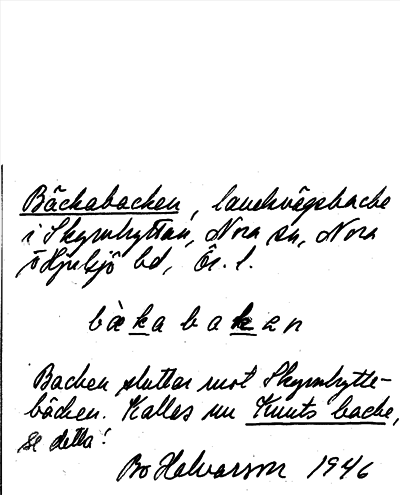 Bäckabacken, landsvägsbacke
i Skyrnhyttan, Nora sn, Nora
o Hjulsjö bd, Ör. l.
bàkabakan
Backen sluttar mot Skyrnhytte-
bäcken. Kallas nu Knuts backe,
se detta!
Bo Halvarson 1946